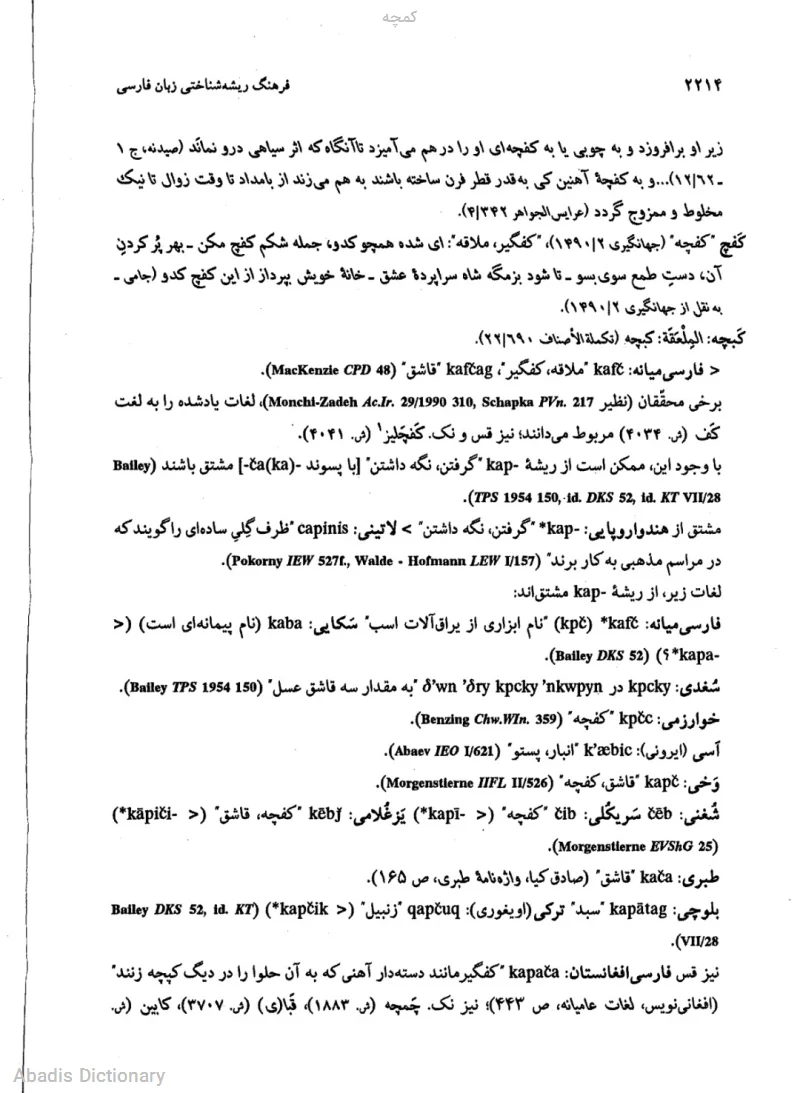 کمچه
۲۲۱۴ فرهنگ ریشه‌شناختی زبان فارسی
زیر او برافروزد و به چوبی یا به کفچه‌ای او را در هم می‌آمیزد تا آنگاه که اثر سیاهی درو نماند (صیدنه، ج ۱
ـ ۱۲/۶۲)...و به کفچۀ آهنین کی به‌قدر قطر فرن ساخته باشند به هم می‌زند از بامداد تا وقت زوال تا نیک
مخلوط و ممزوج گردد (عرایس‌الجواهر ۴/۳۴۲).
کَفچ "کفچه" (جهانگیری ۱۴۹۰/۲)، "کفگیر، ملاقه": ای شده همچو کدو، جمله شکم کفچ مکن ـ بهر پُر کردنِ
آن، دستِ طمع سوی‌بسو ـ تا شود بزمگه شاه سراپردۀ عشق ـ خانۀ خویش بپرداز از این کفچ کدو (جامی ـ
به نقل از جهانگیری ۱۴۹۰/۲).
کَبچه: المِلْعَقَة: کبچه (تکملة‌الأصناف ۲۲/۶۹۰).
< فارسی‌میانه: kafč "ملاقه، کفگیر"، kafčag "قاشق" (MacKenzie CPD 48).
برخی محقّقان (نظیر Monchi-Zadeh Ac.Ir. 29/1990 310, Schapka PVn. 217)، لغات یادشده را به لغت
کَف (ش. ۴۰۳۴) مربوط می‌دانند؛ نیز قس و نک. کَفچلیز¹ (ش. ۴۰۴۱).
با وجود این، ممکن است از ریشۀ -kap "گرفتن، نگه داشتن" [با پسوند -ča(ka)-] مشتق باشند (Bailey
TPS 1954 150, id. DKS 52, id. KT VII/28).
مشتق از هندواروپایی: -kap* "گرفتن، نگه داشتن" > لاتینی: capinis "ظرف گِلیِ ساده‌ای را گویند که
در مراسم مذهبی به کار برند" (Pokorny IEW 527f., Walde - Hofmann LEW I/157).
لغات زیر، از ریشۀ -kap مشتق‌اند:
فارسی‌میانه: kafč* (kpč) "نام ابزاری از یراق‌آلات اسب" سَکایی: kaba (نام پیمانه‌ای است) (<
*kapa- ؟) (Bailey DKS 52).
سُغدی: kpcky در δ'wn 'δry kpcky 'nkwpyn "به مقدار سه قاشق عسل" (Bailey TPS 1954 150).
خوارزمی: kpčc "کفچه" (Benzing Chw.WIn. 359).
آسی (ایرونی): k'æbic "انبار، پستو" (Abaev IEO I/621).
وَخی: kapč "قاشق، کفچه" (Morgenstierne IIFL II/526).
شُغنی: čēb سَریکُلی: čib "کفچه" (< *kapī-) یَزغُلامی: kēbǰ "کفچه، قاشق" (< *kāpiči-)
(Morgenstierne EVShG 25).
طبری: kača "قاشق" (صادق کیا، واژه‌نامۀ طبری، ص ۱۶۵).
بلوچی: kapātag "سبد" ترکی(اویغوری): qapčuq "زنبیل" (< kapčik*) (Bailey DKS 52, id. KT
VII/28).
نیز قس فارسی‌افغانستان: kapača "کفگیرمانند دسته‌دار آهنی که به آن حلوا را در دیگ کپچه زنند"
(افغانی‌نویس، لغات عامیانه، ص ۴۴۳)؛ نیز نک. چَمچه (ش. ۱۸۸۳)، قَبا(ی) (ش. ۳۷۰۷)، کابین (ش.
Abadis Dictionary